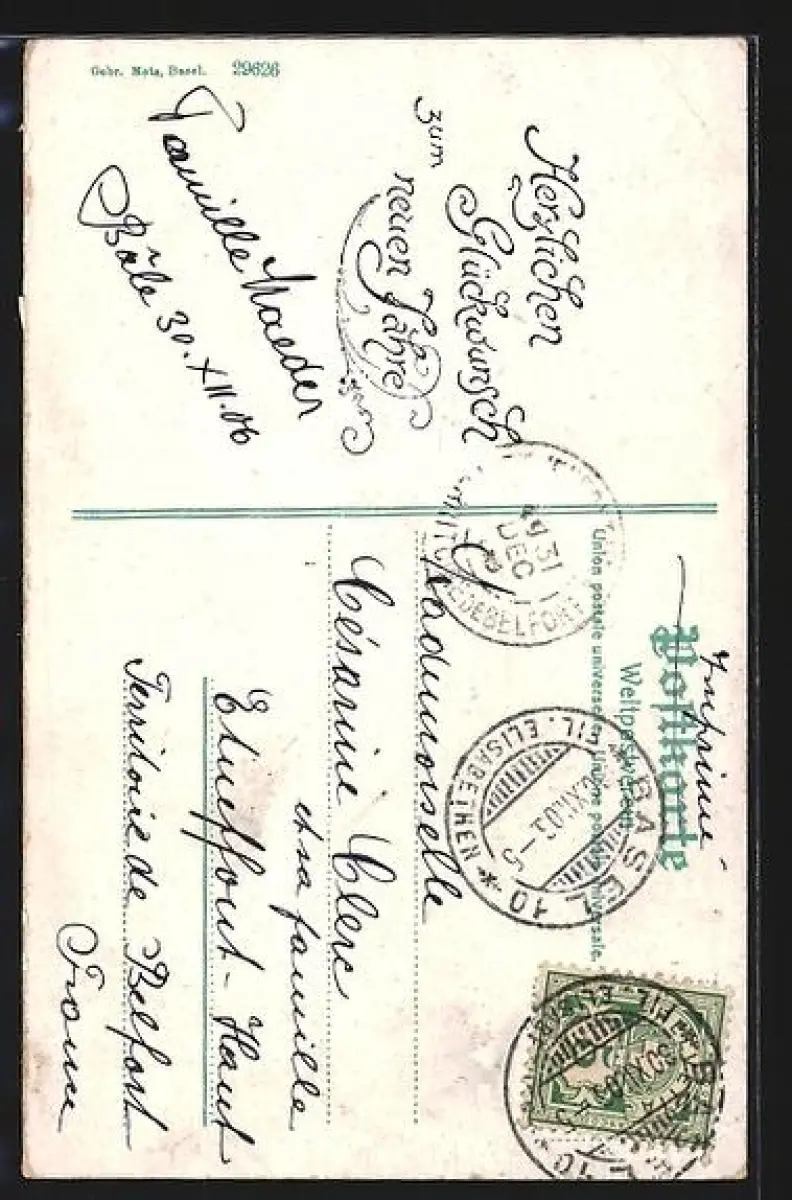 Gebr. Metz, Basel. 29626
Herzlichen
Glückwunsch
zum
neuen Jahre
Famille Maeder
Bâle 30. XII. 06
Imprimé
Postkarte
Weltpostverein
Union postale universelle. Unione postale universale.
Mademoiselle
Césarine Clerc
et sa famille
Etueffont-Haut
Territoire de Belfort
France
31
DEC
DE BELFORT
BASEL 10
FIL. ELISABETHEN